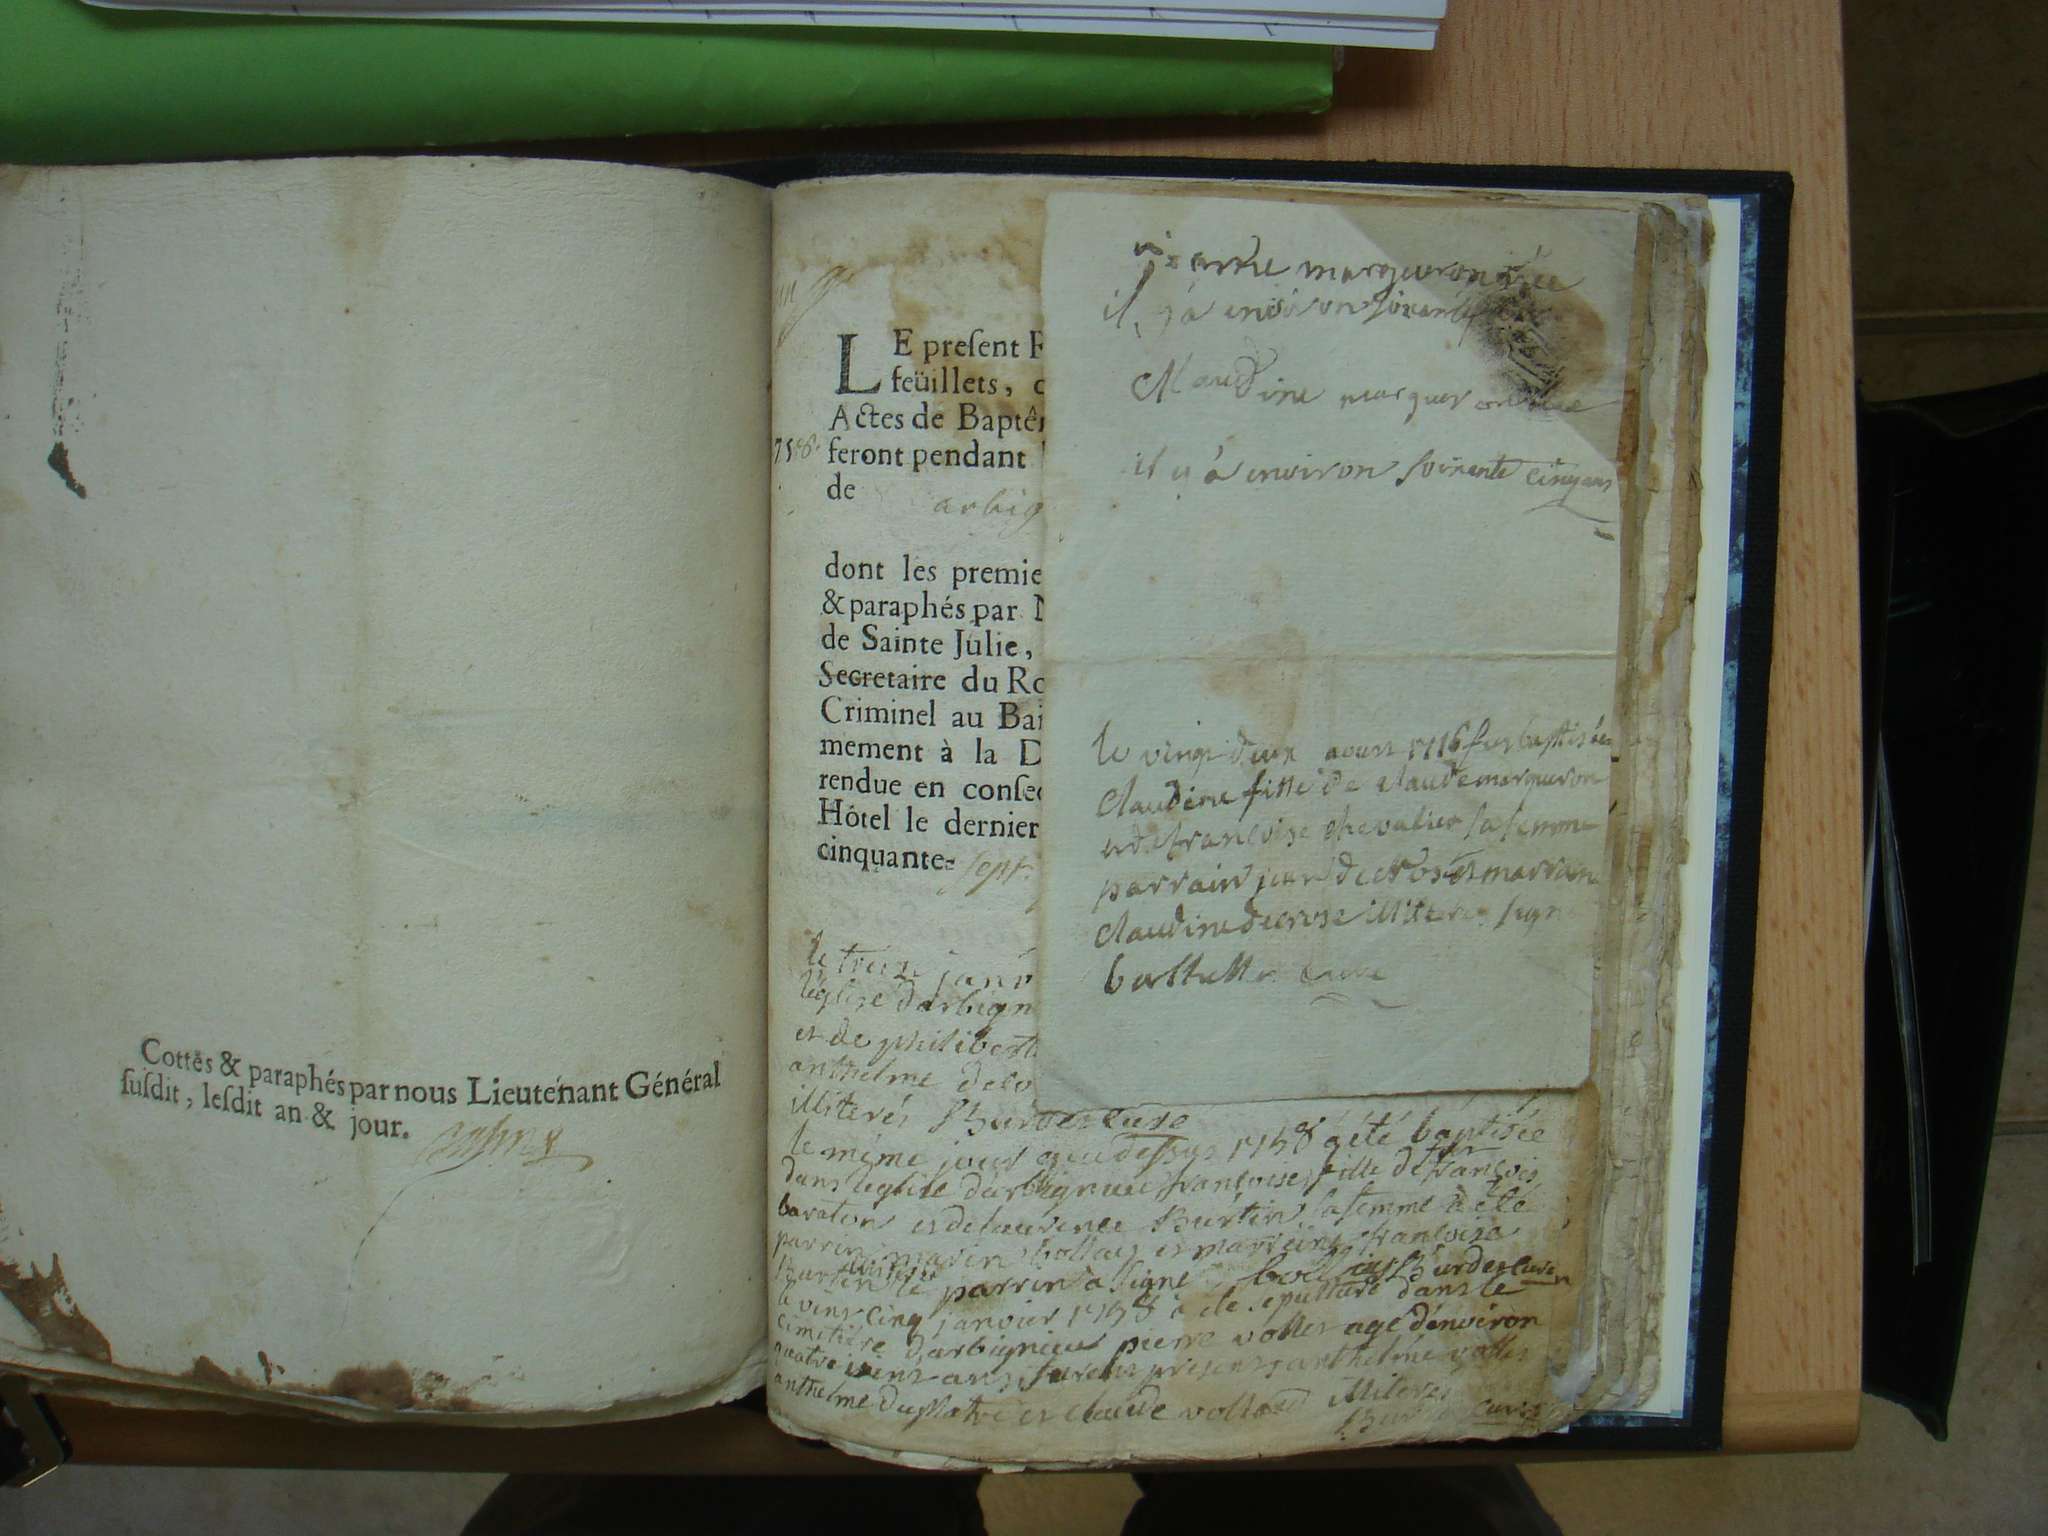 Cottés & paraphés par nous Lieutenant Général
ſuſdit, leſdit an & jour.
LE preſent R
feüillets, c
Actes de Baptê
feront pendant
de arbig
dont les premie
& paraphés par
de Sainte Julie,
Secretaire du Ro
Criminel au Bai
mement à la D
rendue en conſe
Hôtel le dernier
cinquante-sept
le treize janv
l'église d'arbign
et de philibert
anthelme
illiterés Burdet curé
le même jour que dessus 1758 a été baptisée
dans l'eglise d'arbignieu françoise fille de françois
baraton et de laurence Burtin sa femme à été
parrin marin et marreine françoise
Burtin le parrin a signé Burdet curé
le vint cinq janvier 1758 à été sepulturé dans le
cimetiére d'arbignieu pierre vollet agé d'environ
quatre vint ans furent presents anthelme vollet
anthelme et claude illiterés
curé
marqueron
il y a environ soixante
Claudine marqueron
il y à environ soixante cinq ans
le vingt deux aoust 1716 fut baptisée
Claudine fille de claude marqueron
et de françoise chevalier sa femme
parrain jean decrose et marraine
claudine decrose illiteres signé
curé